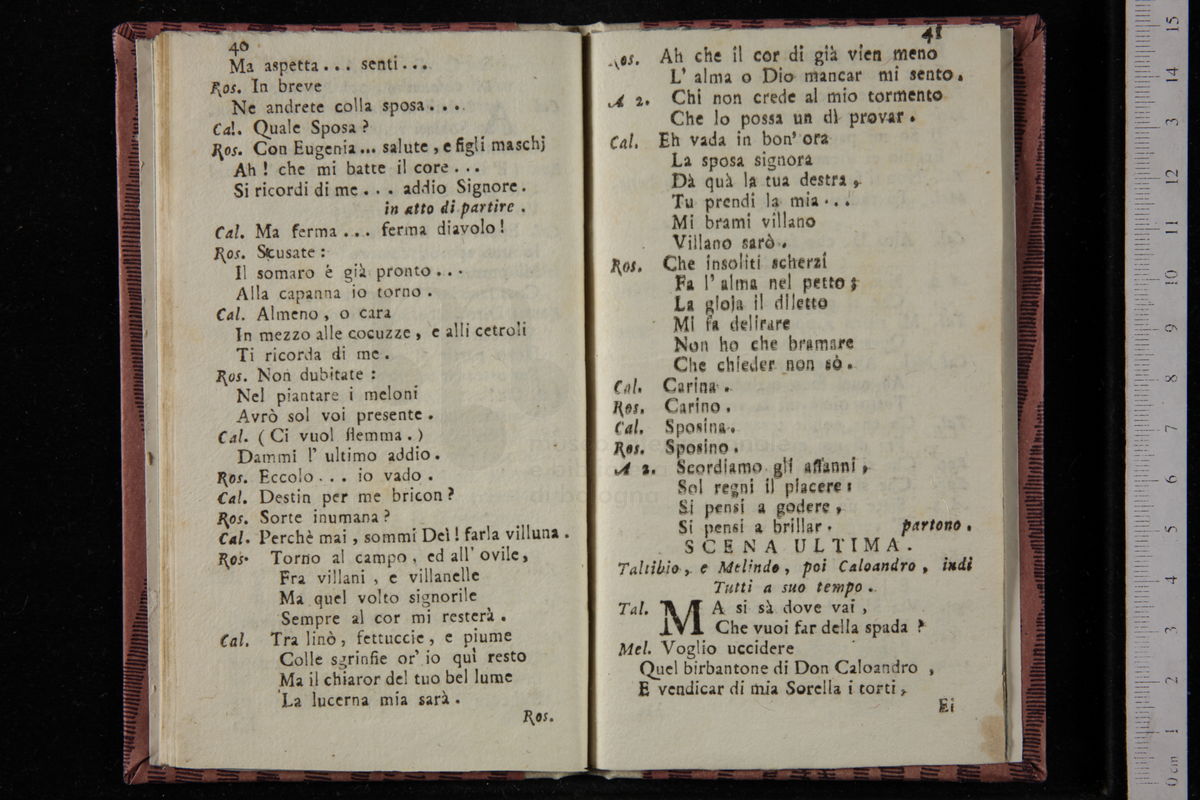 40
Ma aspetta... senti...
Ros. In breve
Ne andrete colla sposa....
Cal. Quale Sposa?
Ros. Con Eugenia... salute, e figli maschj
Ah! che mi batte il core...
Si ricordi di me... addio Signore.
in atto di partire.
Cal. Ma ferma... ferma diavolo!
Ros. Scusate:
Il somaro è già pronto...
Alla capanna io torno.
Cal. Almeno, o cara
In mezzo alle cocuzze, e alli cetroli
Ti ricorda di me.
Ros. Non dubitate:
Nel piantare i meloni
Avrò sol voi presente.
Cal. (Ci vuol flemma.)
Dammi l' ultimo addio.
Ros. Eccolo... io vado.
Cal. Destin per me bricon?
Ros. Sorte inumana?
Cal. Perchè mai, sommi Dei! farla villuna.
Ros. Torno al campo, ed all' ovile,
Fra villani, e villanelle
Ma quel volto signorile
Sempre al cor mi resterà.
Cal. Tra linò, fettuccie, e piume
Colle sgrinfie or' io quì resto
Ma il chiaror del tuo bel lume
La lucerna mia sarà.
Ros.
41
Ros. Ah che il cor di già vien meno
L' alma o Dio mancar mi sento.
A 2. Chi non crede al mio tormento
Che lo possa un dì provar.
Cal. Eh vada in bon' ora
La sposa signora
Dà quà la tua destra,
Tu prendi la mia...
Mi brami villano
Villano sarò.
Ros. Che insoliti scherzi
Fa l' alma nel petto;
La gioja il diletto
Mi fa delirare
Non ho che bramare
Che chieder non sò.
Cal. Carina.
Ros. Carino.
Cal. Sposina.
Ros. Sposino.
A 2. Scordiamo gli affanni,
Sol regni il piacere:
Si pensi a godere,
Si pensi a brillar. partono.
SCENA ULTIMA.
Taltibio, e Melindo, poi Caloandro, indi
Tutti a suo tempo.
Tal. MA si sà dove vai,
Che vuoi far della spada?
Mel. Voglio uccidere
Quel birbantone di Don Caloandro,
E vendicar di mia Sorella i torti,
Ei